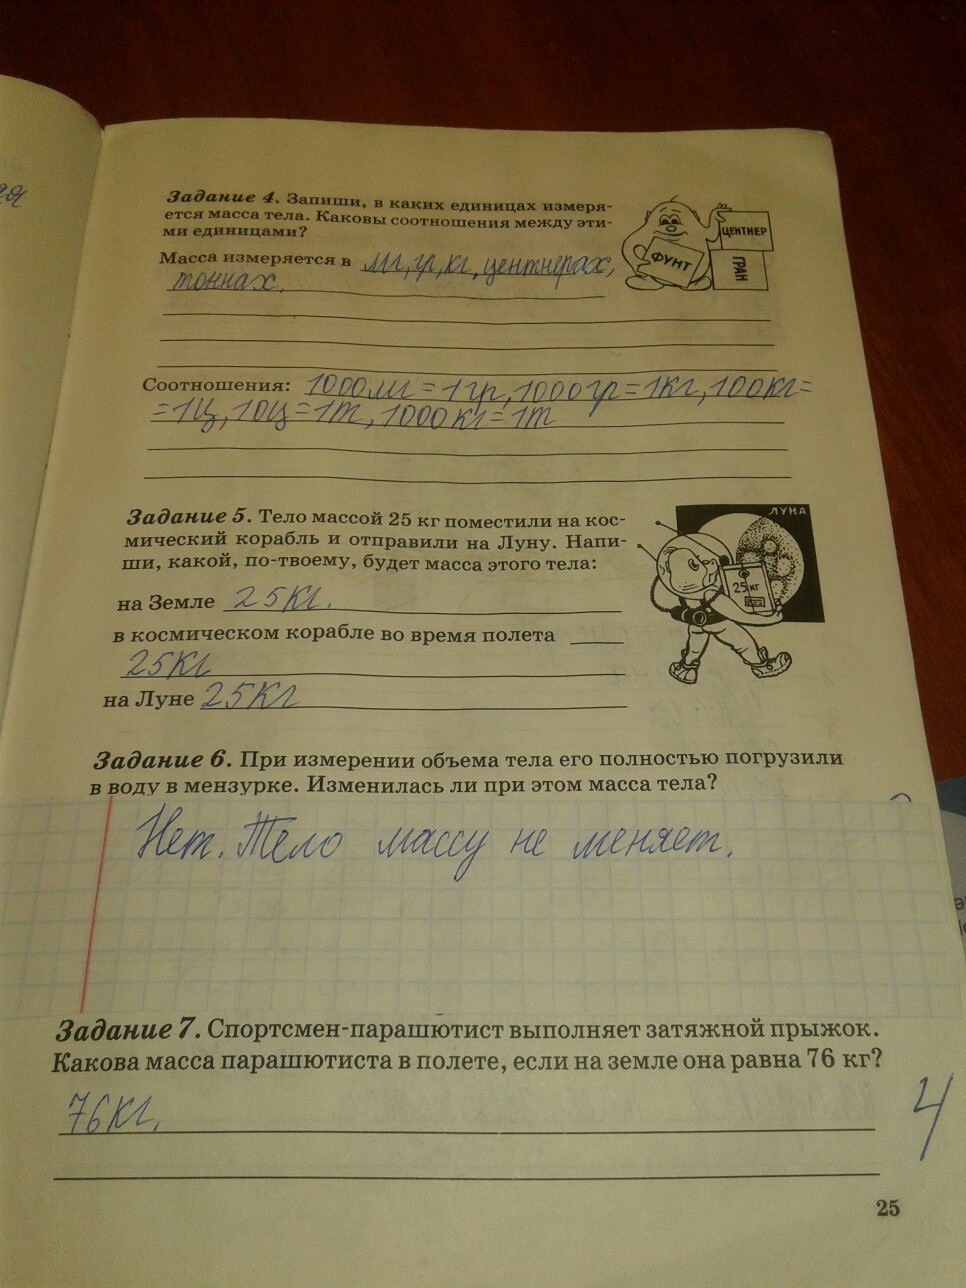 ая
Задание 4. Запиши, в каких единицах измеря-
ется масса тела. Каковы соотношения между эти-
ми единицами?
ЦЕНТНЕР
ФУНТ
ГРАН
Масса измеряется в мг, гр, кг, центнерах,
тоннах.
Соотношения: 1000мг = 1гр, 1000гр = 1кг, 100кг =
= 1ц, 10ц = 1т, 1000кг = 1т
Задание 5. Тело массой 25 кг поместили на кос-
мический корабль и отправили на Луну. Напи-
ши, какой, по-твоему, будет масса этого тела:
ЛУНА
25 КГ
на Земле 25кг.
в космическом корабле во время полета
25кг
на Луне 25кг
Задание 6. При измерении объема тела его полностью погрузили
в воду в мензурке. Изменилась ли при этом масса тела?
Нет. Тело массу не меняет.
Задание 7. Спортсмен-парашютист выполняет затяжной прыжок.
Какова масса парашютиста в полете, если на земле она равна 76 кг?
76кг.
4
25